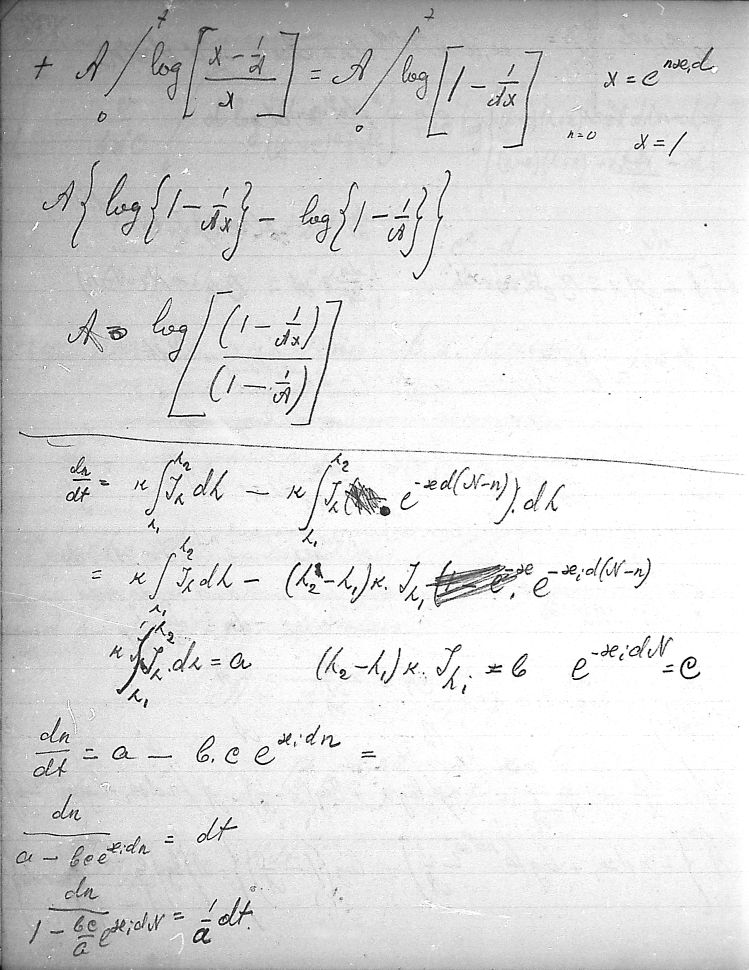 + A /₀⁷ log [ (x − 1/A) / x ] = A /₀⁷ log [ 1 − 1/(Ax) ]   x = e^(nϰᵢd)
n=0   x = 1
A { log { 1 − 1/(Ax) } − log { 1 − 1/A } }
A log [ (1 − 1/(Ax)) / (1 − 1/A) ]
dn/dt = κ ∫_(λ₁)^(λ₂) J_λ dλ − κ ∫_(λ₁)^(λ₂) J_λ e^(−ϰd(N−n)) . dλ
= κ ∫_(λ₁)^(λ₂) J_λ dλ − (λ₂ − λ₁) κ. J_(λ₁) e^(−ϰᵢd(N−n))
κ ∫_(λ₁)^(λ₂) J_λ . dλ = a   (λ₂ − λ₁) κ. J_(λᵢ) = b   e^(−ϰᵢdN) = c
dn/dt = a − b. c e^(ϰᵢdn) =
dn / (a − bc e^(ϰᵢdn)) = dt
dn / (1 − (bc/a) e^(ϰᵢdN)) = (1/a) dt.